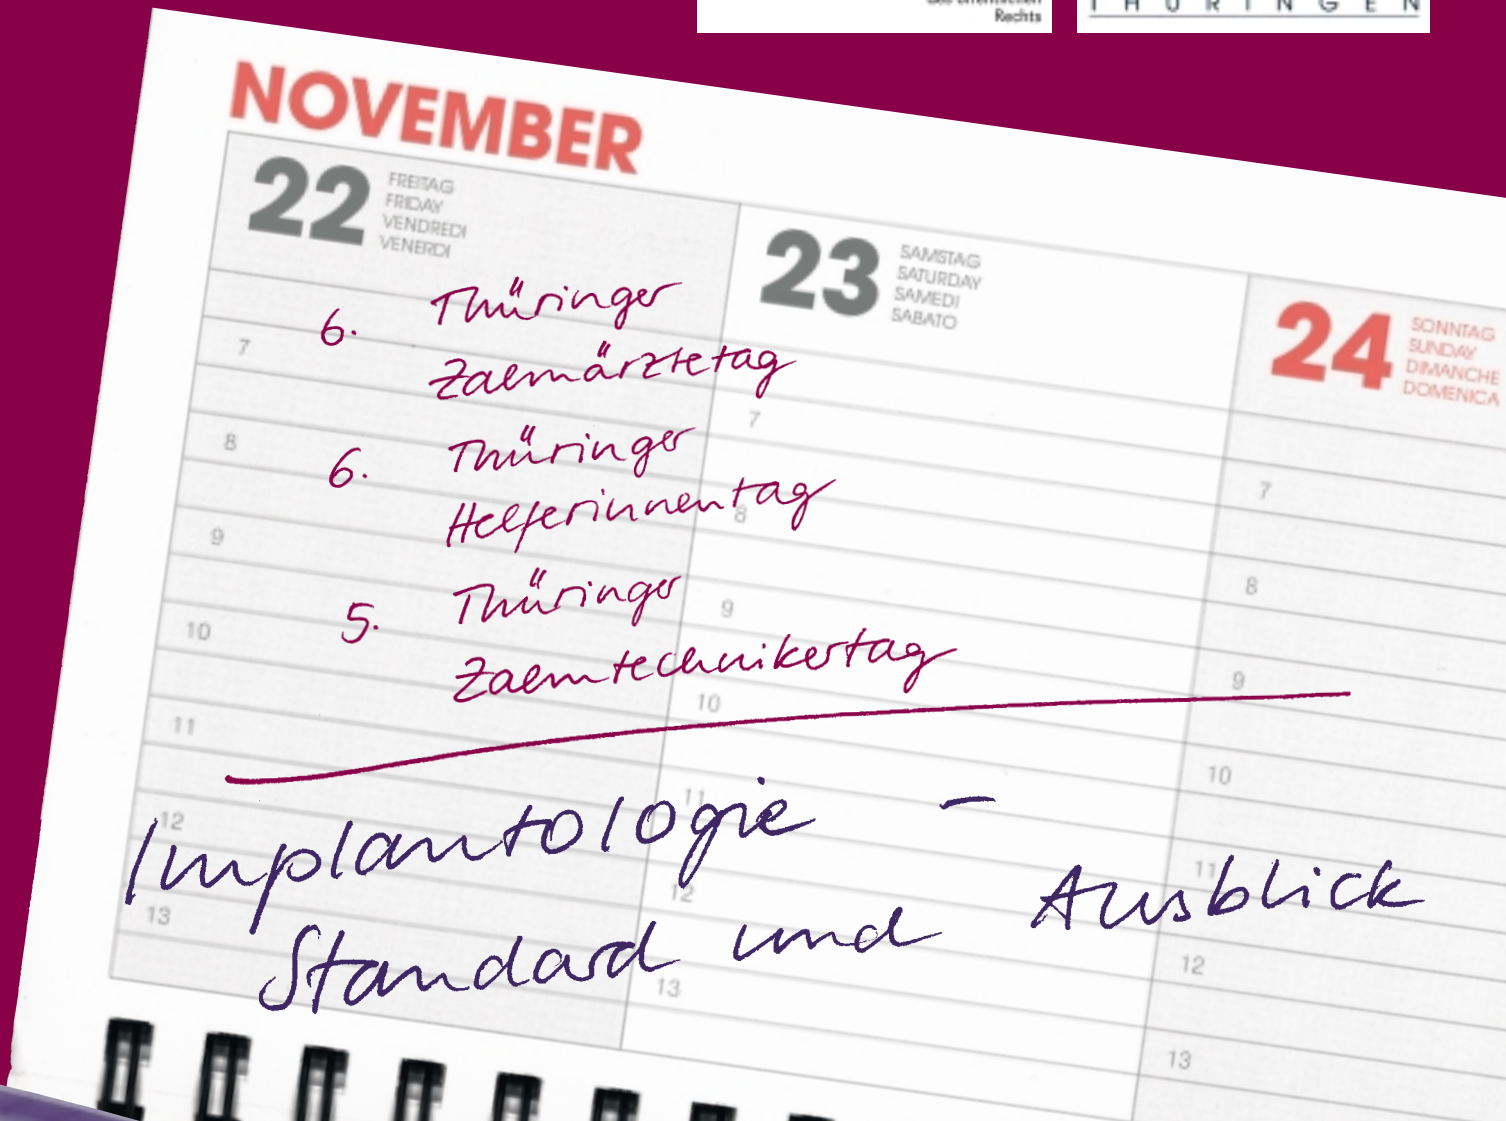 des öffentlichen
Rechts
THÜRINGEN
NOVEMBER
22
FREITAG
FRIDAY
VENDREDI
VENERDI
23
SAMSTAG
SATURDAY
SAMEDI
SABATO
24
SONNTAG
SUNDAY
DIMANCHE
DOMENICA
6. Thüringer
Zahnärztetag
6. Thüringer
Helferinnentag
5. Thüringer
Zahntechnikertag
Implantologie –
Standard und Ausblick
7
8
9
10
11
12
13
7
8
9
10
11
12
13
7
8
9
10
11
12
13